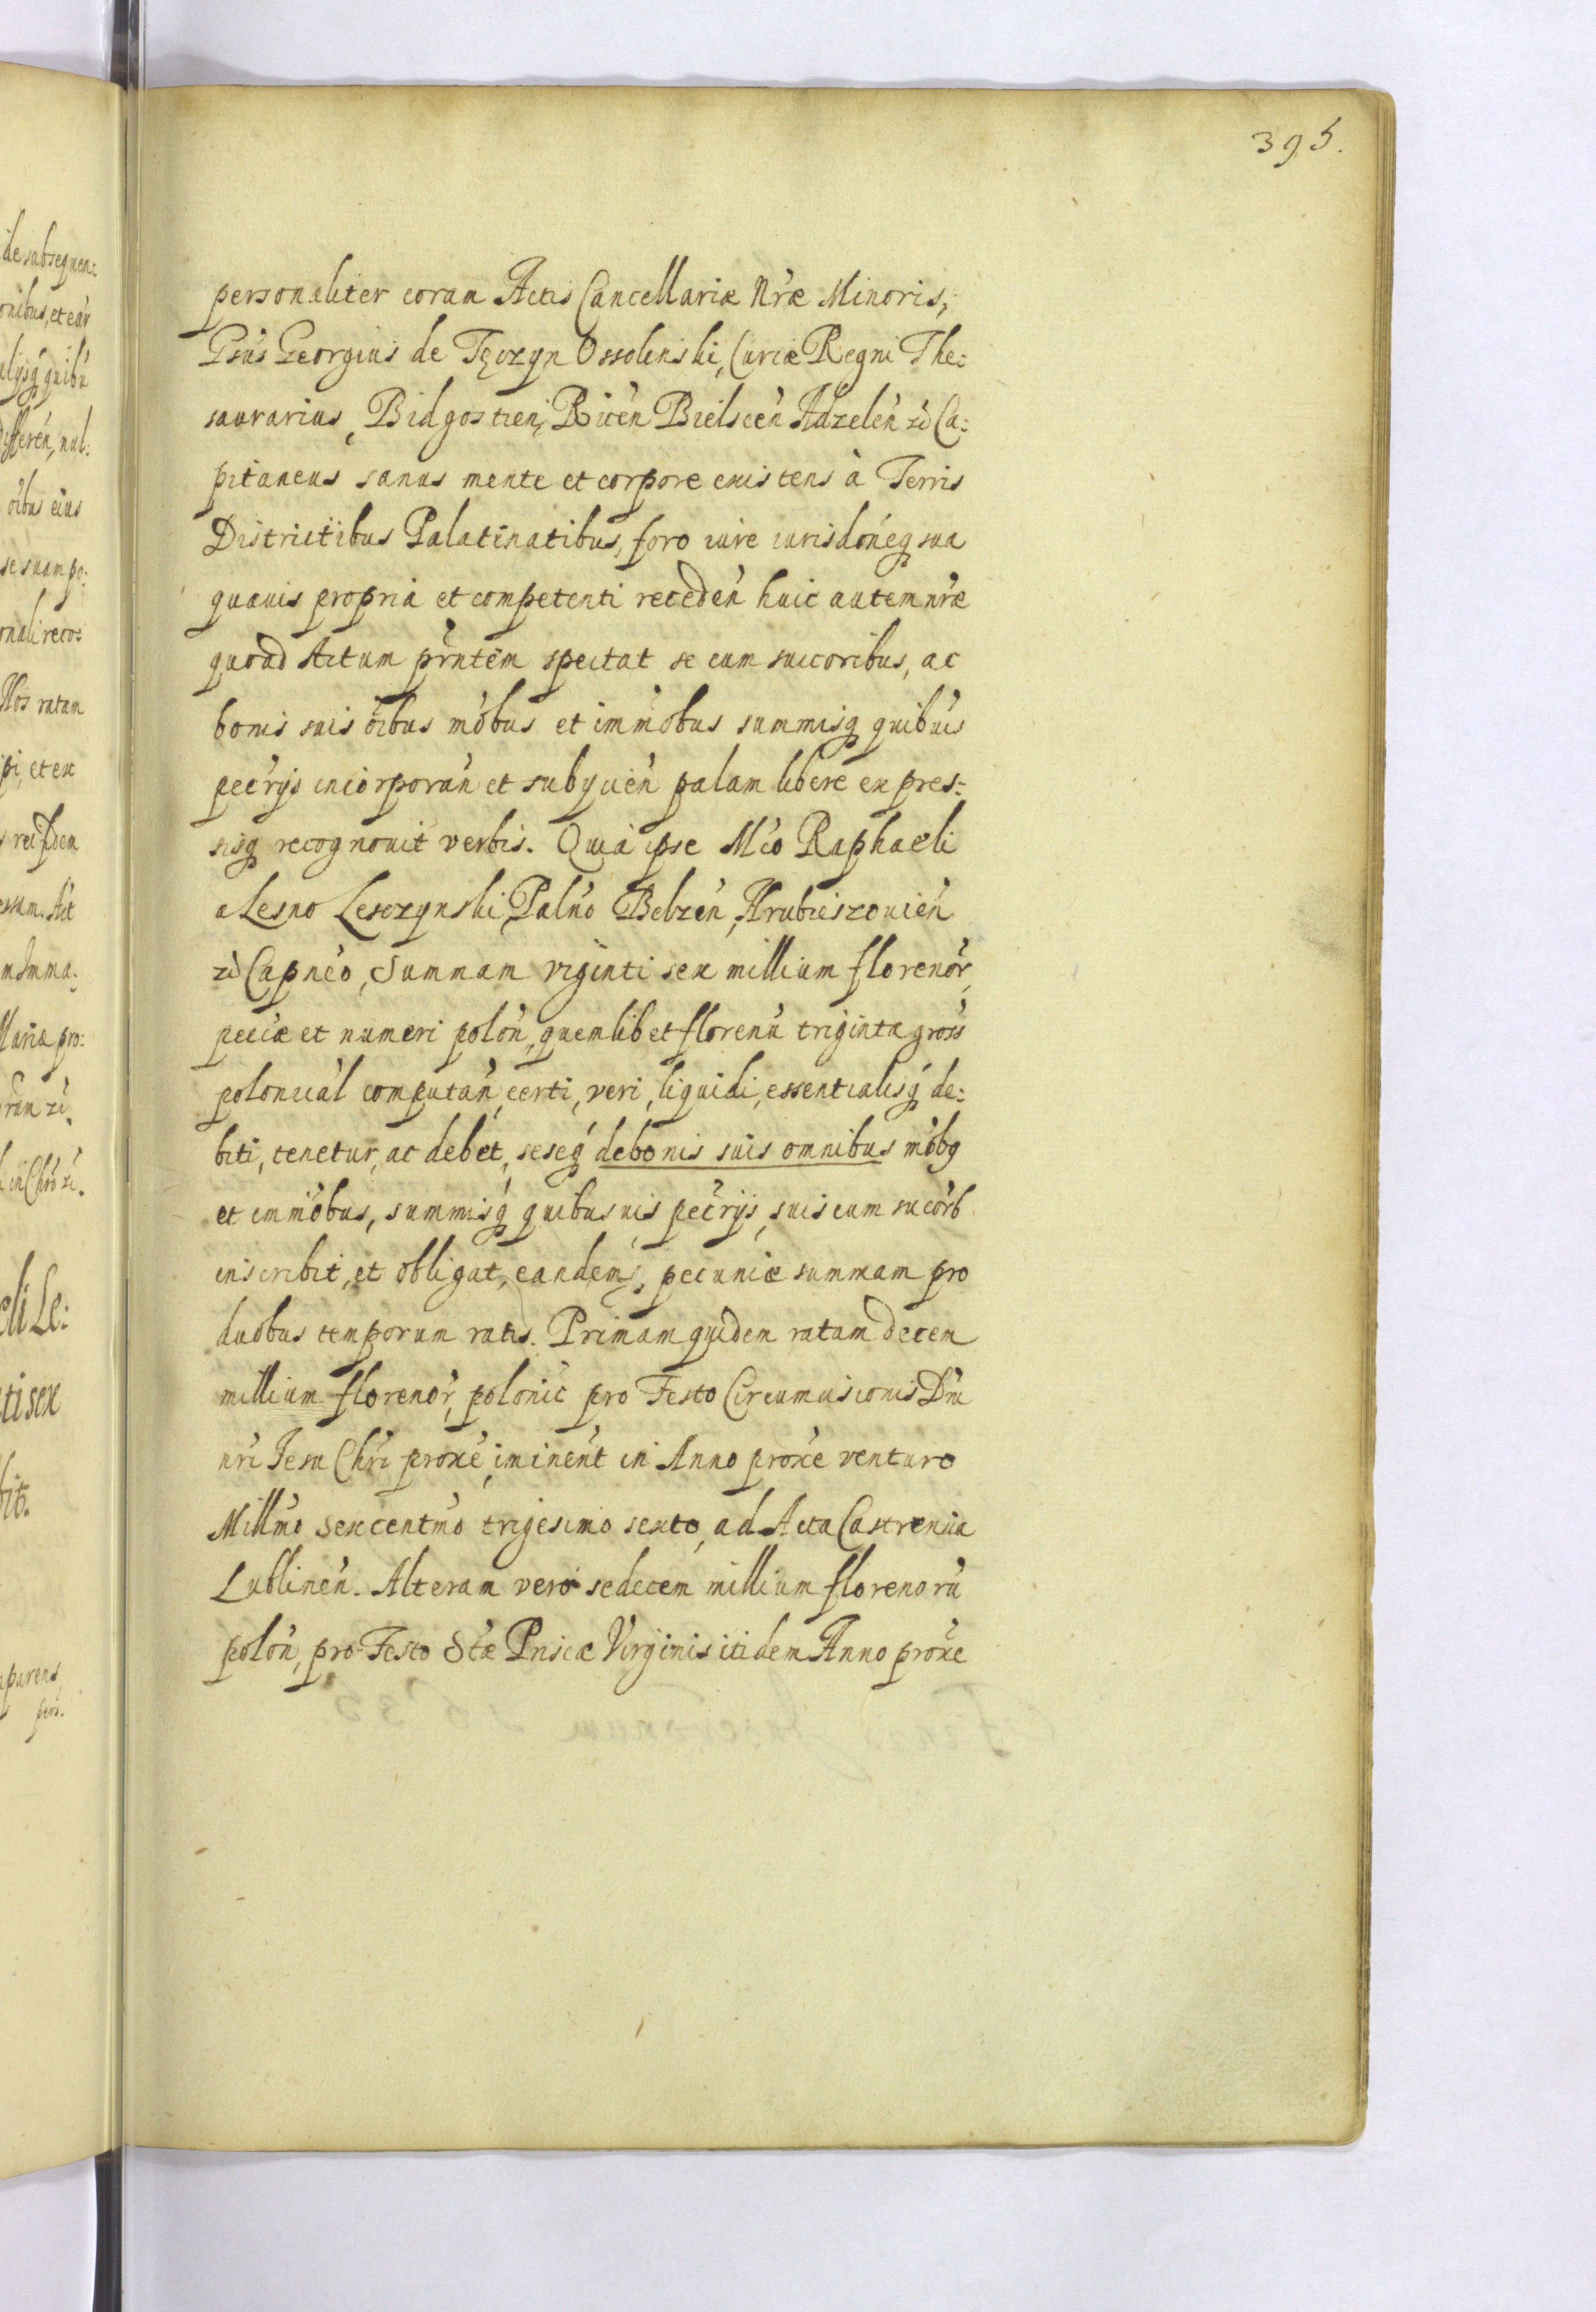 395.
personaliter coram Actis Cancellariæ Nr̃æ Minoris,
Gsũs Georgius de Tęczyn Ossolinski, Curiæ Regni The:
saurarius, Bidgostien, Ricen̄ Bielscen̄ Adzelen̄ zc̀ Ca:
pitaneus sanus mente et corpore existens à Terris
Districtibus Palatinatibus, foro iure iurisdõneq sua
quauis propria et competenti receden̄ huic autem nr̃æ
quoad Actum pr̃ntem spectat se cum succoribus, ac
bonis suis oĩbus mõbus et immõbus summisq quibuis
pec̃rijs incorporan̄ et subijcien̄ palam libere expres:
sisq recognouit verbis. Quia ipse Mco Raphaeli
a Lesno Lesczynski, Palño Belzen̄, Hrubieszouien̄
zc̀ Capn̄eo, Summam viginti sex millium florenor̃,
pec̃iæ et numeri polon̄, quemlibet florenũ triginta gross̃
polonical̃ computan̄, certi, veri, liquidi, essentialisq́ de:
biti, tenetur, ac debet, seseq́ debonis suis omnibus mõbq
et immõbus, summisq́ quibusuis pec̃rijs, suis cum sucor̃b
inscribit, et obligat, eandemq, pecuniæ summam pro
duobus temporum ratis. Primam quidem ratam decem
millium florenor̃, polonic̃ pro Festo Circumcisionis Dñi
nr̃i Jesu Chr̃i prox̃e iminent̃ in Anno prox̃e venturo
Millm̃o Sexcentm̃o trigesimo sexto, ad Acta Castrensia
Lublinen̄. Alteram verò sedecem millium florenorũ
polon̄, pro Festo Stæ Priscæ Virginis itidem Anno prox̃e